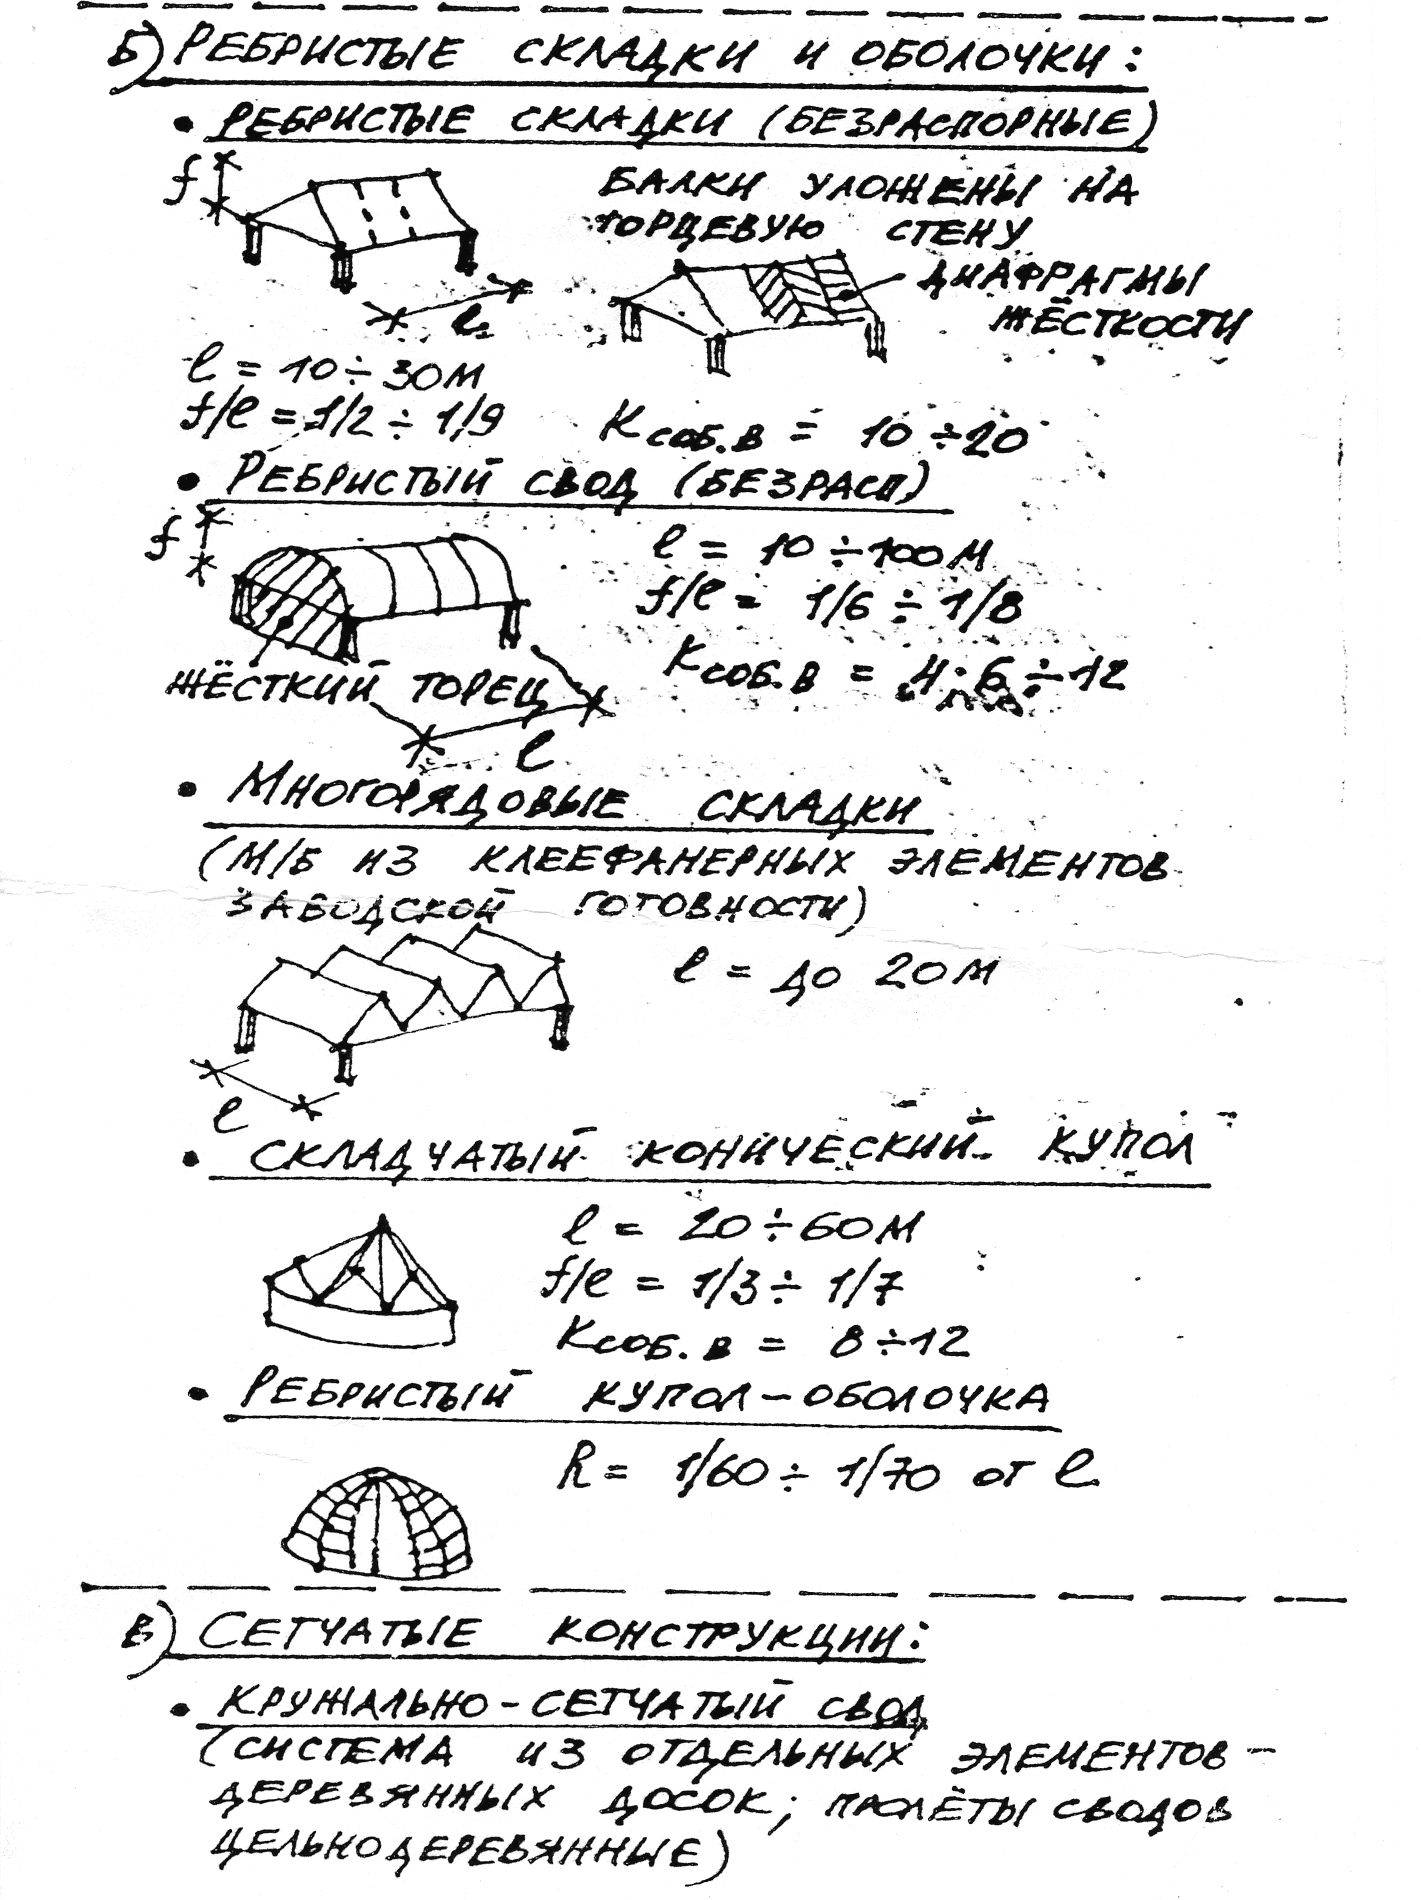 Б) РЕБРИСТЫЕ СКЛАДКИ И ОБОЛОЧКИ:
• РЕБРИСТЫЕ СКЛАДКИ (БЕЗРАСПОРНЫЕ)
f
БАЛКИ УЛОЖЕНЫ НА
ТОРЦЕВУЮ СТЕНУ
ДИАФРАГМЫ
ЖЁСТКОСТИ
l
l = 10÷30М
f/l = 1/2 ÷ 1/9
Kсоб.в = 10÷20
• РЕБРИСТЫЙ СВОД (БЕЗРАСП)
f
l = 10÷100М
f/l = 1/6 ÷ 1/8
Kсоб.в = 4; 6÷12
ЖЁСТКИЙ ТОРЕЦ
l
• МНОГОРЯДОВЫЕ СКЛАДКИ
(М/Б ИЗ КЛЕЕФАНЕРНЫХ ЭЛЕМЕНТОВ
ЗАВОДСКОЙ ГОТОВНОСТИ)
l = ДО 20М
l
• СКЛАДЧАТЫЙ КОНИЧЕСКИЙ КУПОЛ
l = 20÷60М
f/l = 1/3 ÷ 1/7
Kсоб.в = 8÷12
• РЕБРИСТЫЙ КУПОЛ-ОБОЛОЧКА
R = 1/60 ÷ 1/70 ОТ l
В) СЕТЧАТЫЕ КОНСТРУКЦИИ:
• КРУЖАЛЬНО-СЕТЧАТЫЙ СВОД
(СИСТЕМА ИЗ ОТДЕЛЬНЫХ ЭЛЕМЕНТОВ –
ДЕРЕВЯННЫХ ДОСОК; ПРОЛЁТЫ СВОДОВ
ЦЕЛЬНОДЕРЕВЯННЫЕ)